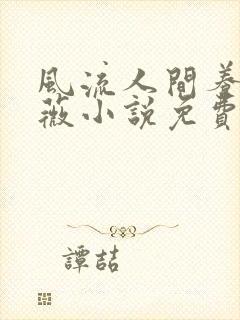 風流人間養
薇小說免費
譚喆